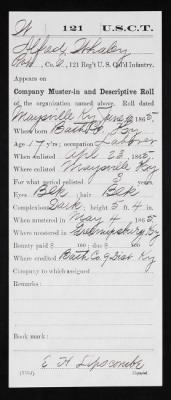 W 121 U.S.C.T.
Alfred Whaley
Co. , 121 Reg't U. S. Col'd Infantry.
Appears on
Company Muster-in and Descriptive Roll
of the organization named above. Roll dated
Maysville Ky June 1865
Where born Bath Co., Ky
Age 17 y'rs; occupation Laborer
When enlisted Apr. 23, 1865.
Where enlisted Maysville Ky
For what period enlisted 3 years.
Eyes Blk ; hair Blk
Complexion Dark ; height 5 ft. 4 in.
When mustered in May 4, 1865.
Where mustered in Ky
Bounty paid $ 100; due $ 100
Where credited Bath Co 9 Dist Ky
Company to which assigned
Remarks:
Book mark:
E H Lipscombe
Copyist.